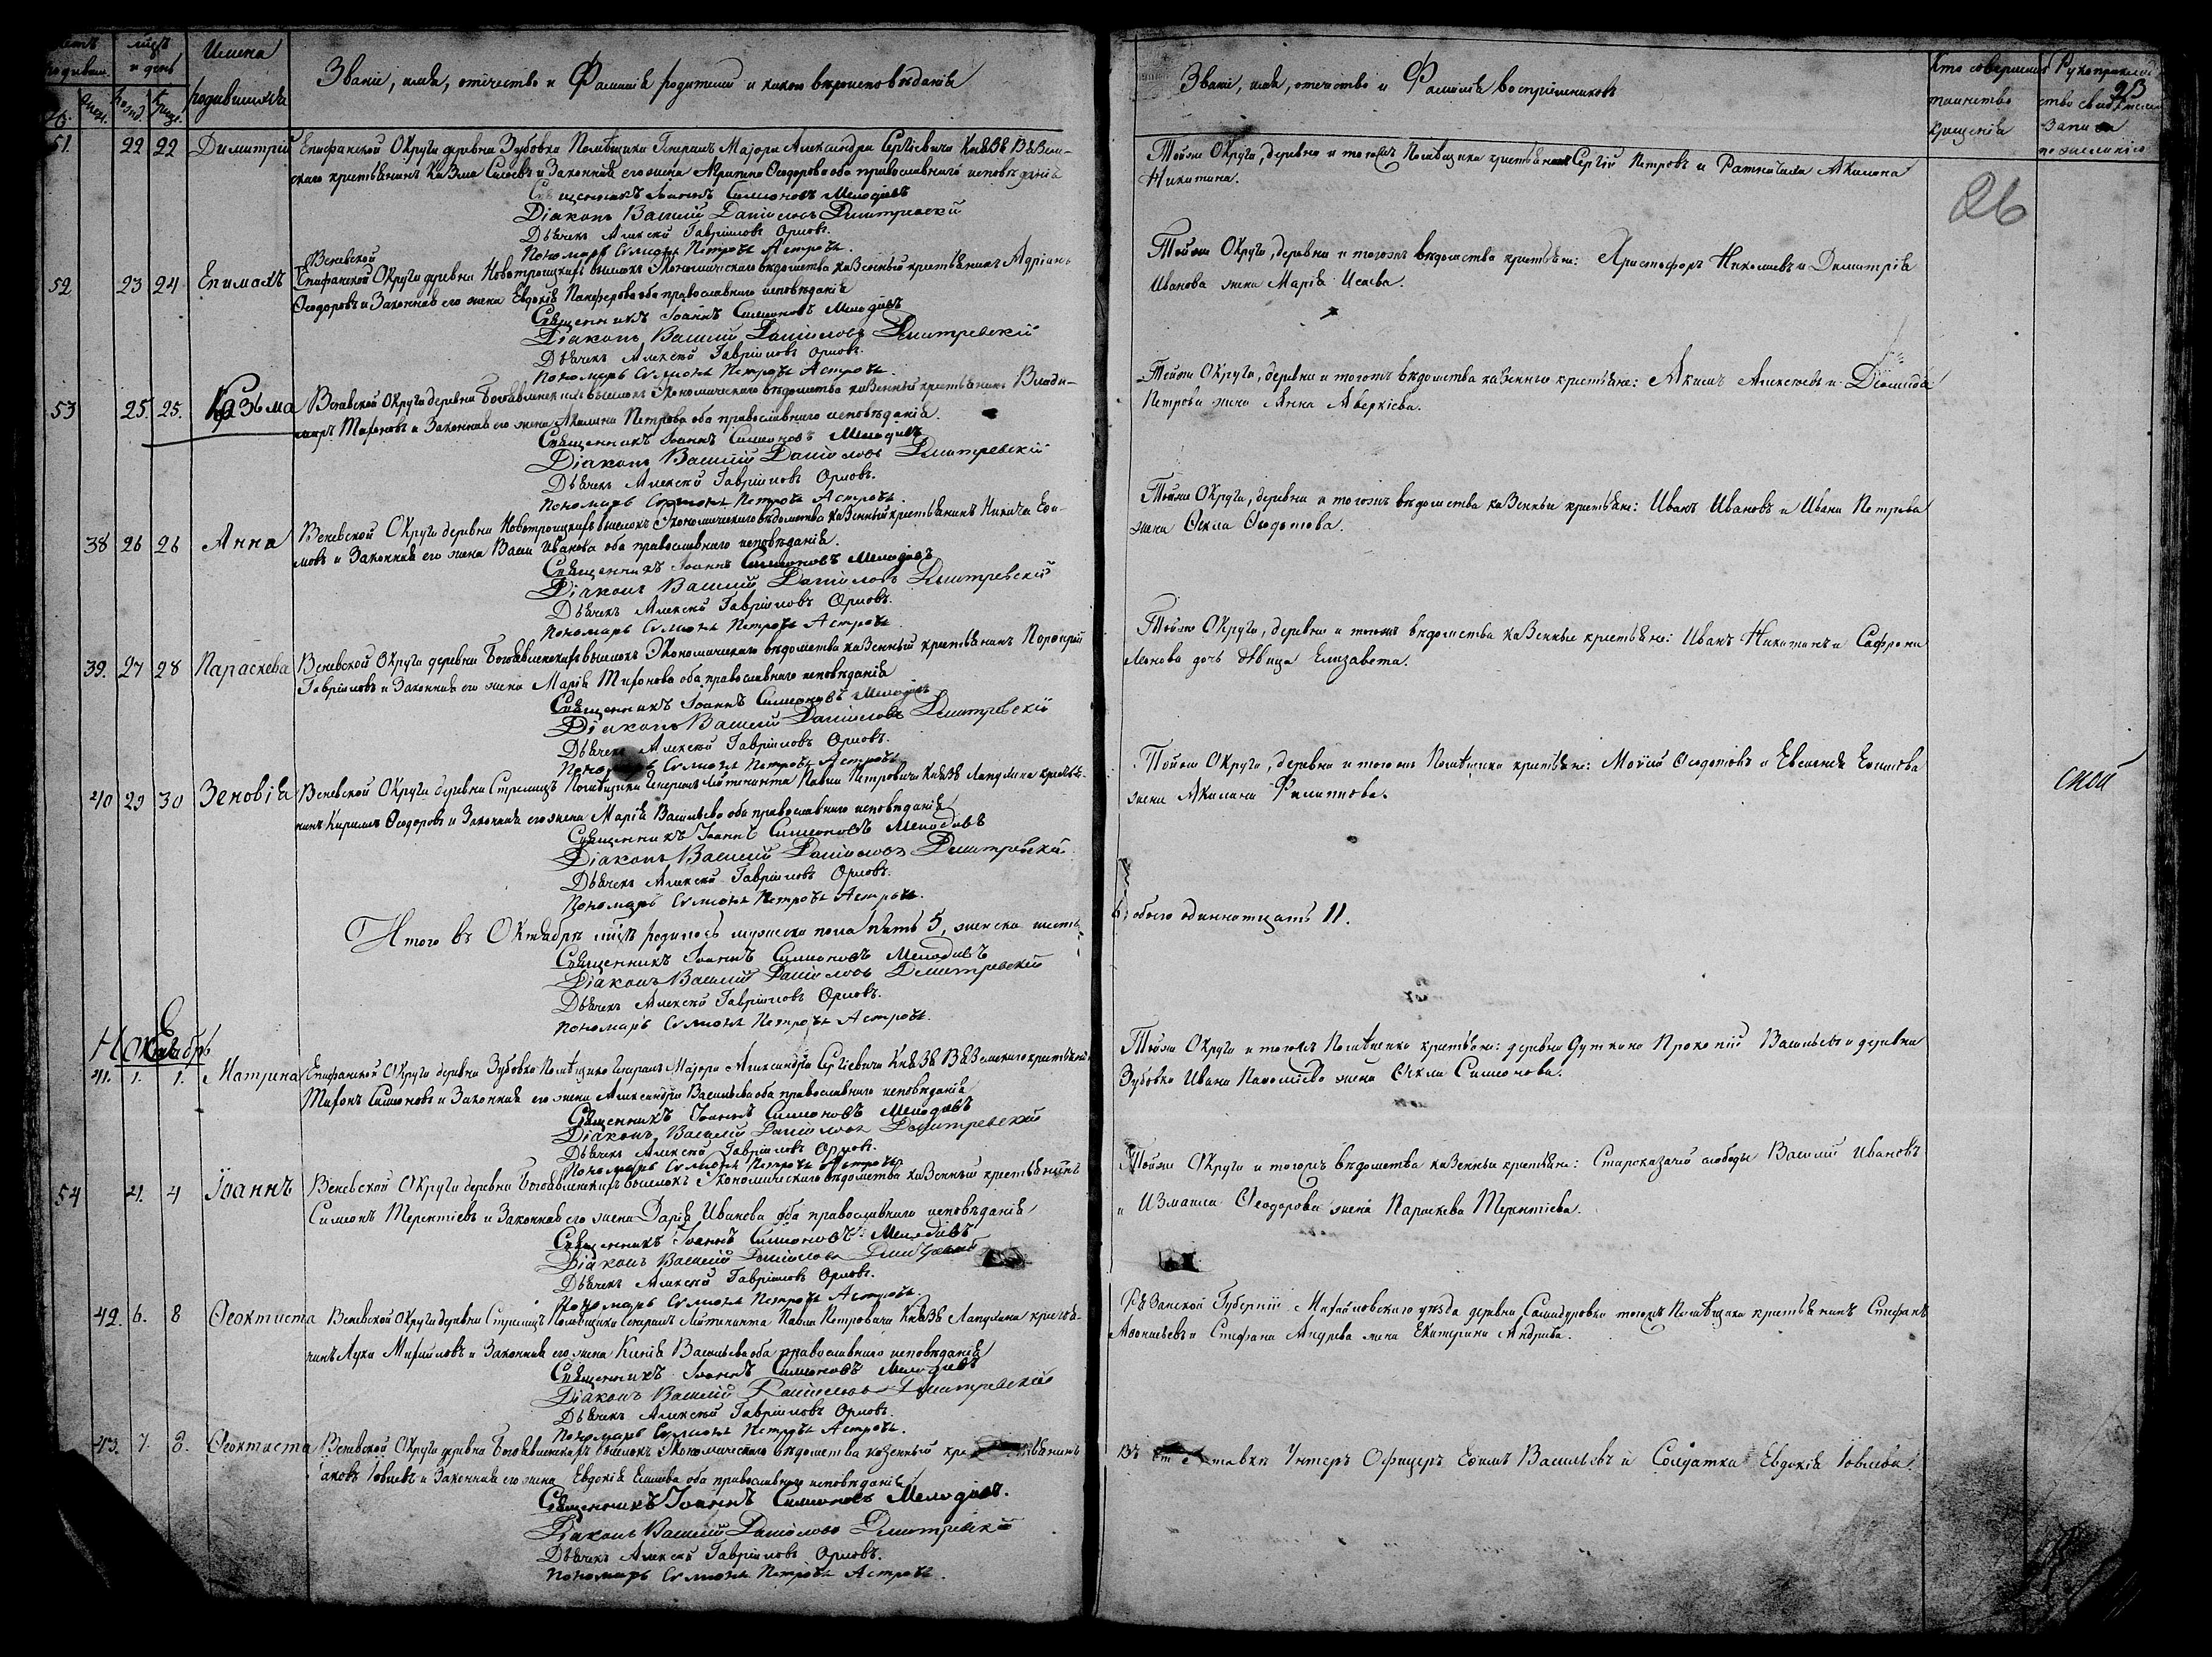 мѣсяцъ
и день
Имена
родившихся
Званіе, имя, отечество и Фамилія родителей и какого вѣроисповѣданія
51. 22 22 Димитрій Епифанской Округи деревни Зубовки Помѣщика Генералъ Маіора Александра Сергіевича Князя Вязем-
скаго крестьянинъ Казма Сисоевъ и Законная его жена Акилина Ѳеодорова оба православнаго исповѣданія
Священникъ Іоаннъ Симеоновъ Мелодіевъ
Діаконъ Василій Даніиловъ Дмитревскій
Дьячекъ Алексѣй Гавріиловъ Орловъ.
Пономарь Сѵмеонъ Петровъ Астровъ.
Веневской
52 23 24 Епимахъ Епифанской Округи деревни Новотроицкихъ выселокъ Экономическаго вѣдомства казенный крестьянинъ Адріанъ
Ѳеодоровъ и Законная его жена Евдокія Панферова оба православнаго исповѣданія
Священникъ Іоаннъ Симеоновъ Мелодіевъ
Діаконъ Василій Даніиловъ Дмитревскій
Дьячекъ Алексѣй Гавріиловъ Орловъ.
Пономарь Сѵмеонъ Петровъ Астровъ.
53 25. 25. Козьма Веневской Округи деревни Богоявленскихъ выселокъ Экономическаго вѣдомства казенный крестьянинъ Влади-
миръ Тихоновъ и Законная его жена Акилина Петрова оба православнаго исповѣданія.
Священникъ Іоаннъ Симеоновъ Мелодіевъ
Діаконъ Василій Даніиловъ Дмитревскій
Дьячекъ Алексѣй Гавріиловъ Орловъ.
Пономарь Сѵмеонъ Петровъ Астровъ.
38 26 26 Анна Веневской Округи деревни Новотроицкихъ выселокъ Экономическаго вѣдомства казенный крестьянинъ Никита Ефи-
мовъ и Законная его жена Васса Иванова оба православнаго исповѣданія.
Священникъ Іоаннъ Симеоновъ Мелодіевъ
Діаконъ Василій Даніиловъ Дмитревскій
Дьячекъ Алексѣй Гавріиловъ Орловъ.
Пономарь Сѵмеонъ Петровъ Астровъ
39. 27 28 Параскева Веневской Округи деревни Богоявленскихъ выселокъ Экономическаго вѣдомства казенный крестьянинъ Порфирій
Гавріиловъ и Законная его жена Марія Тихонова оба православнаго исповѣданія
Священникъ Іоаннъ Симеоновъ Мелодіевъ
Діаконъ Василій Даніиловъ Дмитревскій
Дьячекъ Алексѣй Гавріиловъ Орловъ.
Сѵмеонъ Петровъ Астровъ
40 29 30 Зеновія Веневской Округи деревни Стрелицъ Помѣщика Генералъ Лейтенанта Павла Петровича Князя Лапухина крестья-
нинъ Кириллъ Ѳеодоровъ и Законная его жена Марія Васильева оба православнаго исповѣданія
Священникъ Іоаннъ Симеоновъ Мелодіевъ
Діаконъ Василій Даніиловъ Дмитревскій
Дьячекъ Алексѣй Гавріиловъ Орловъ.
Пономарь Сѵмеонъ Петровъ Астровъ.
Итого въ Октябрѣ мцѣ родилось мужеска пола пять 5, женска шесть
Священникъ Іоаннъ Симеоновъ Мелодіевъ
Діаконъ Василій Даніиловъ Дмитревскій
Дьячекъ Алексѣй Гавріиловъ Орловъ.
Пономарь Сѵмеонъ Петровъ Астровъ.
41. 1. 1. Матрена Епифанской Округи деревни Зубовки Помѣщика Генералъ Маіора Александра Сергіевича Князя Вяземскаго крестьянинъ
Тихонъ Симеоновъ и Законная его жена Александра Васильева оба православнаго исповѣданія
Священникъ Іоаннъ Симеоновъ Мелодіевъ
Діаконъ Василій Даніиловъ Дмитревскій
Дьячекъ Алексѣй Гавріиловъ Орловъ.
Пономарь Сѵмеонъ Петровъ Астровъ
54 4. 4 Іоаннъ Веневской Округи деревни Богоявленскихъ выселокъ Экономическаго вѣдомства казенный крестьянинъ
Симеонъ Терентіевъ и Законная его жена Дарія Иванова оба православнаго исповѣданія
Священникъ Іоаннъ Симеоновъ Мелодіевъ
Діаконъ Василій Даніиловъ
Дьячекъ Алексѣй Гавріиловъ Орловъ.
Пономарь Сѵмеонъ Петровъ Астровъ.
42. 6. 8 Ѳеоктиста Веневской Округи деревни Стрелицъ Помѣщика Генералъ Лейтенанта Павла Петровича Князя Лапухина крестья-
нинъ Лука Михайловъ и Законная его жена Ксенія Васильева оба православнаго исповѣданія
Священникъ Іоаннъ Симеоновъ Мелодіевъ
Діаконъ Василій Даніиловъ Дмитревскій
Дьячекъ Алексѣй Гавріиловъ Орловъ.
Пономарь Сѵмеонъ Петровъ Астровъ.
43. 7. 8. Ѳеоктиста Веневской Округи деревни Богоявленскихъ выселокъ Экономическаго вѣдомства казенный
Іовлевъ и Законная его жена Евдокія Епишева оба православнаго исповѣданія
Священникъ Іоаннъ Симеоновъ Мелодіевъ.
Діаконъ Василій Даніиловъ Дмитревскій
Дьячекъ Алексѣй Гавріиловъ Орловъ.
Пономарь Сѵмеонъ Петровъ Астровъ.
Званіе, имя, отечество и Фамилія воспріемниковъ
Кто совершалъ
таинство
крещенія
Рукоприклад
ство свидѣтелей
записи
по желанію
26
Тойже Округи, деревни и тогожъ Помѣщика крестьяне Сергій Петровъ и Акилина
Никитина.
Тойже Округи, деревни и тогожъ вѣдомства крестьяне: Христофоръ Николаевъ и Димитрія
Иванова жена Марія Исаева.
Тойже Округи, деревни и тогожъ вѣдомства казенные крестьяне: Акимъ Алексѣевъ и Діомида
Петрова жена Анна Аверкіева.
Тойже Округи, деревни и тогожъ вѣдомства казенные крестьяне: Иванъ Ивановъ и Ивана Петрова
жена Ѳекла Ѳедотова.
Тойже Округи, деревни и тогожъ вѣдомства казенные крестьяне: Иванъ Никитинъ и Сафрона
Леонова дочь дѣвица Елизавета.
Тойже Округи, деревни и тогожъ Помѣщика крестьяне: Моѵсій Ѳедотовъ и Евсигнія
жена Акилина Филиппова.
сной
6, обоего одиннатцать 11.
Тойже Округи и тогожъ Помѣщика крестьяне: деревни Дуткина Прокопій Васильевъ и деревни
Зубовки Ивана Пахоміева жена Ѳекла Симеонова.
Тойже Округи и тогожъ вѣдомства казенные крестьяне: Староказачей слободы Василій Ивановъ
и Измаила Ѳеодорова жена Параскева Терентіева.
Рязанской Губерніи Михайловскаго уѣзда деревни тогожъ Помѣщика крестьянинъ Стефанъ
Аѳонасьевъ и Стефана Андреева жена Екатерина Андреева.
Унтеръ Офицеръ Ефимъ Васильевъ и Солдатка Евдокія Іовлева.